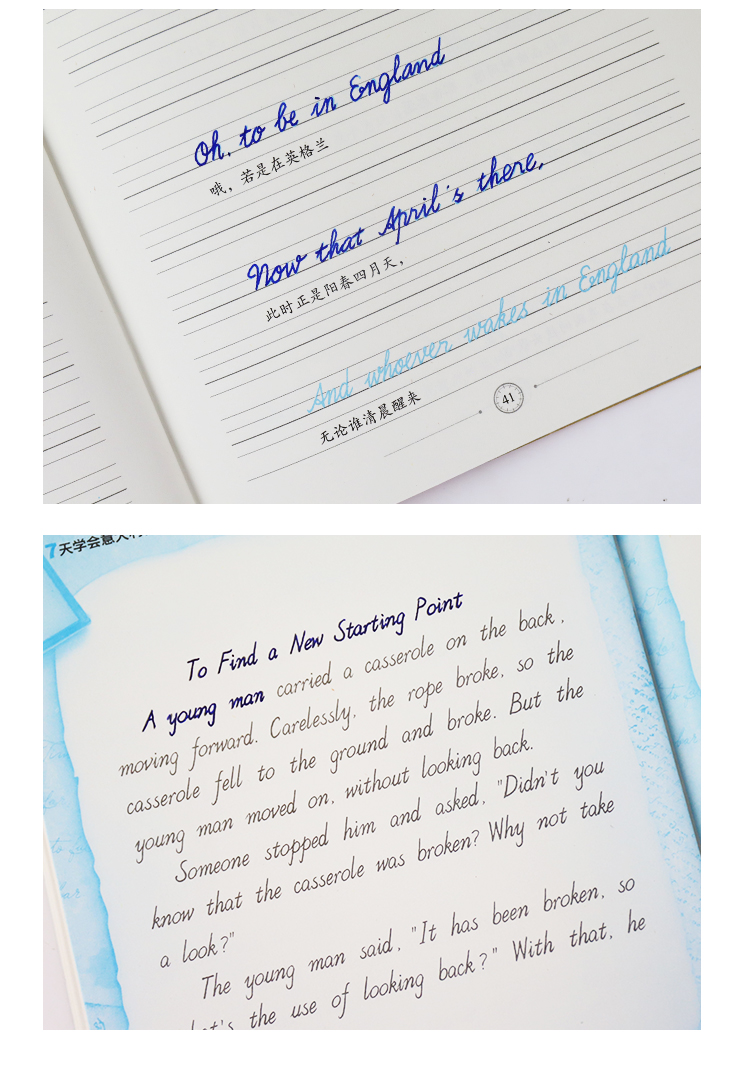 Oh, to be in England
哦，若是在英格兰
Now that April's there,
此时正是阳春四月天，
And whoever wakes in England
无论谁清晨醒来
41
7天学会意大利
To Find a New Starting Point
A young man carried a casserole on the back,
moving forward. Carelessly, the rope broke, so the
casserole fell to the ground and broke. But the
young man moved on, without looking back.
Someone stopped him and asked, "Didn't you
know that the casserole was broken? Why not take
a look?"
The young man said, "It has been broken, so
the use of looking back?" With that, he